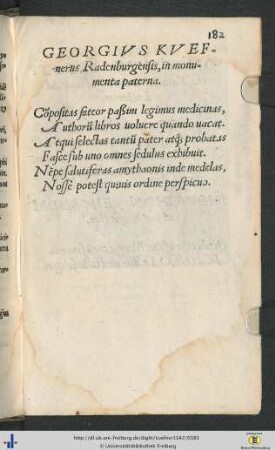 182
GEORGIVS KVEF-
nerus Radenburgensis, in monu-
menta paterna.
Cõpositas fateor paßim legimus medicinas,
Authorũ libros uoluere quando uacat.
Atqui selectas tantũ pater atq; probatas
Fasce sub uno omnes sedulus exhibuit.
Nẽpe salutiferas amythaonis inde medelas,
Nosse potest quiuis ordine perspicuo.
http://dl.ub.uni-freiburg.de/diglit/kuefner1542/0383
© Universitätsbibliothek Freiburg